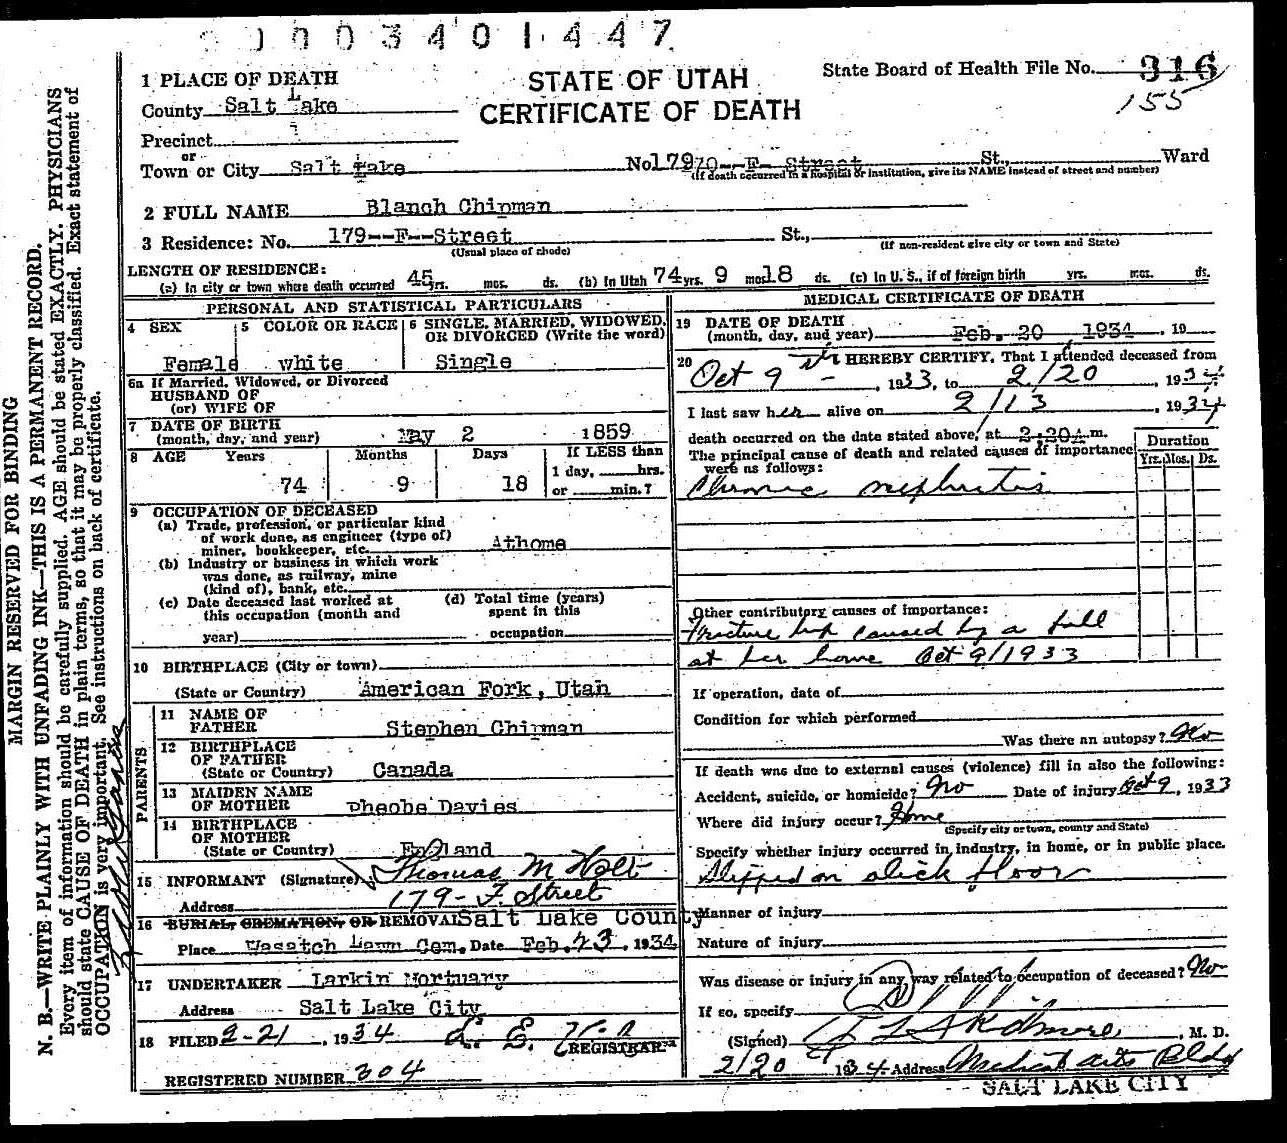 0003401447
1 PLACE OF DEATH
STATE OF UTAH
CERTIFICATE OF DEATH
State Board of Health File No. 316
155
County Salt Lake
Precinct
or
Town or City Salt Lake No. 179 F Street St., Ward
(If death occurred in a hospital or institution, give its NAME instead of street and number)
2 FULL NAME Blanch Chipman
3 Residence: No. 179--F--Street St.,
(Usual place of abode) (If non-resident give city or town and State)
LENGTH OF RESIDENCE:
(a) In city or town where death occurred 45 yrs. mos. ds. (b) In Utah 74 yrs. 9 mos. 18 ds. (c) In U. S., if of foreign birth yrs. mos. ds.
PERSONAL AND STATISTICAL PARTICULARS
4 SEX Female
5 COLOR OR RACE white
6 SINGLE, MARRIED, WIDOWED, OR DIVORCED (Write the word) Single
6a If Married, Widowed, or Divorced
HUSBAND OF
(or) WIFE OF
7 DATE OF BIRTH
(month, day, and year) May 2 1859
8 AGE Years Months Days If LESS than
1 day, hrs.
or min.?
74 9 18
9 OCCUPATION OF DECEASED
(a) Trade, profession, or particular kind
of work done, as engineer (type of)
miner, bookkeeper, etc. Athome
(b) Industry or business in which work
was done, as railway, mine
(kind of), bank, etc.
(c) Date deceased last worked at
this occupation (month and
year)
(d) Total time (years)
spent in this
occupation
10 BIRTHPLACE (City or town)
(State or Country) American Fork, Utah
PARENTS
11 NAME OF
FATHER Stephen Chipman
12 BIRTHPLACE
OF FATHER
(State or Country) Canada
13 MAIDEN NAME
OF MOTHER Pheobe Davies
14 BIRTHPLACE
OF MOTHER
(State or Country) England
15 INFORMANT (Signature) Thomas M Holt
Address 179- F. Street
16 BURIAL, CREMATION, OR REMOVAL Salt Lake County
Place Wasatch Lawn Cem. Date Feb. 23, 1934
17 UNDERTAKER Larkin Mortuary
Address Salt Lake City
18 FILED 2-21, 1934
REGISTRAR
REGISTERED NUMBER 304
MEDICAL CERTIFICATE OF DEATH
19 DATE OF DEATH
(month, day, and year) Feb. 20 1934, 19
20 I HEREBY CERTIFY, That I attended deceased from
Oct 9th, 1933, to 2/20, 1934
I last saw her alive on 2/13, 1934
death occurred on the date stated above, at 2:20A m.
The principal cause of death and related causes of importance
were as follows:
Duration
Yrs. Mos. Ds.
Chronic nephritis
Other contributory causes of importance:
Fracture hip caused by a fall
at her home Oct 9/1933
If operation, date of
Condition for which performed
Was there an autopsy? No
If death was due to external causes (violence) fill in also the following:
Accident, suicide, or homicide? No Date of injury Oct 9, 1933
Where did injury occur? Home
(Specify city or town, county and State)
Specify whether injury occurred in industry, in home, or in public place.
Slipped on slick floor
Manner of injury
Nature of injury
Was disease or injury in any way related to occupation of deceased? No
If so, specify
(Signed) Skidmore, M. D.
2/20 1934 Address Medical arts Bldg
SALT LAKE CITY
MARGIN RESERVED FOR BINDING
N. B.—WRITE PLAINLY WITH UNFADING INK—THIS IS A PERMANENT RECORD.
Every item of information should be carefully supplied. AGE should be stated EXACTLY. PHYSICIANS
should state CAUSE OF DEATH in plain terms, so that it may be properly classified. Exact statement of
OCCUPATION is very important. See instructions on back of certificate.